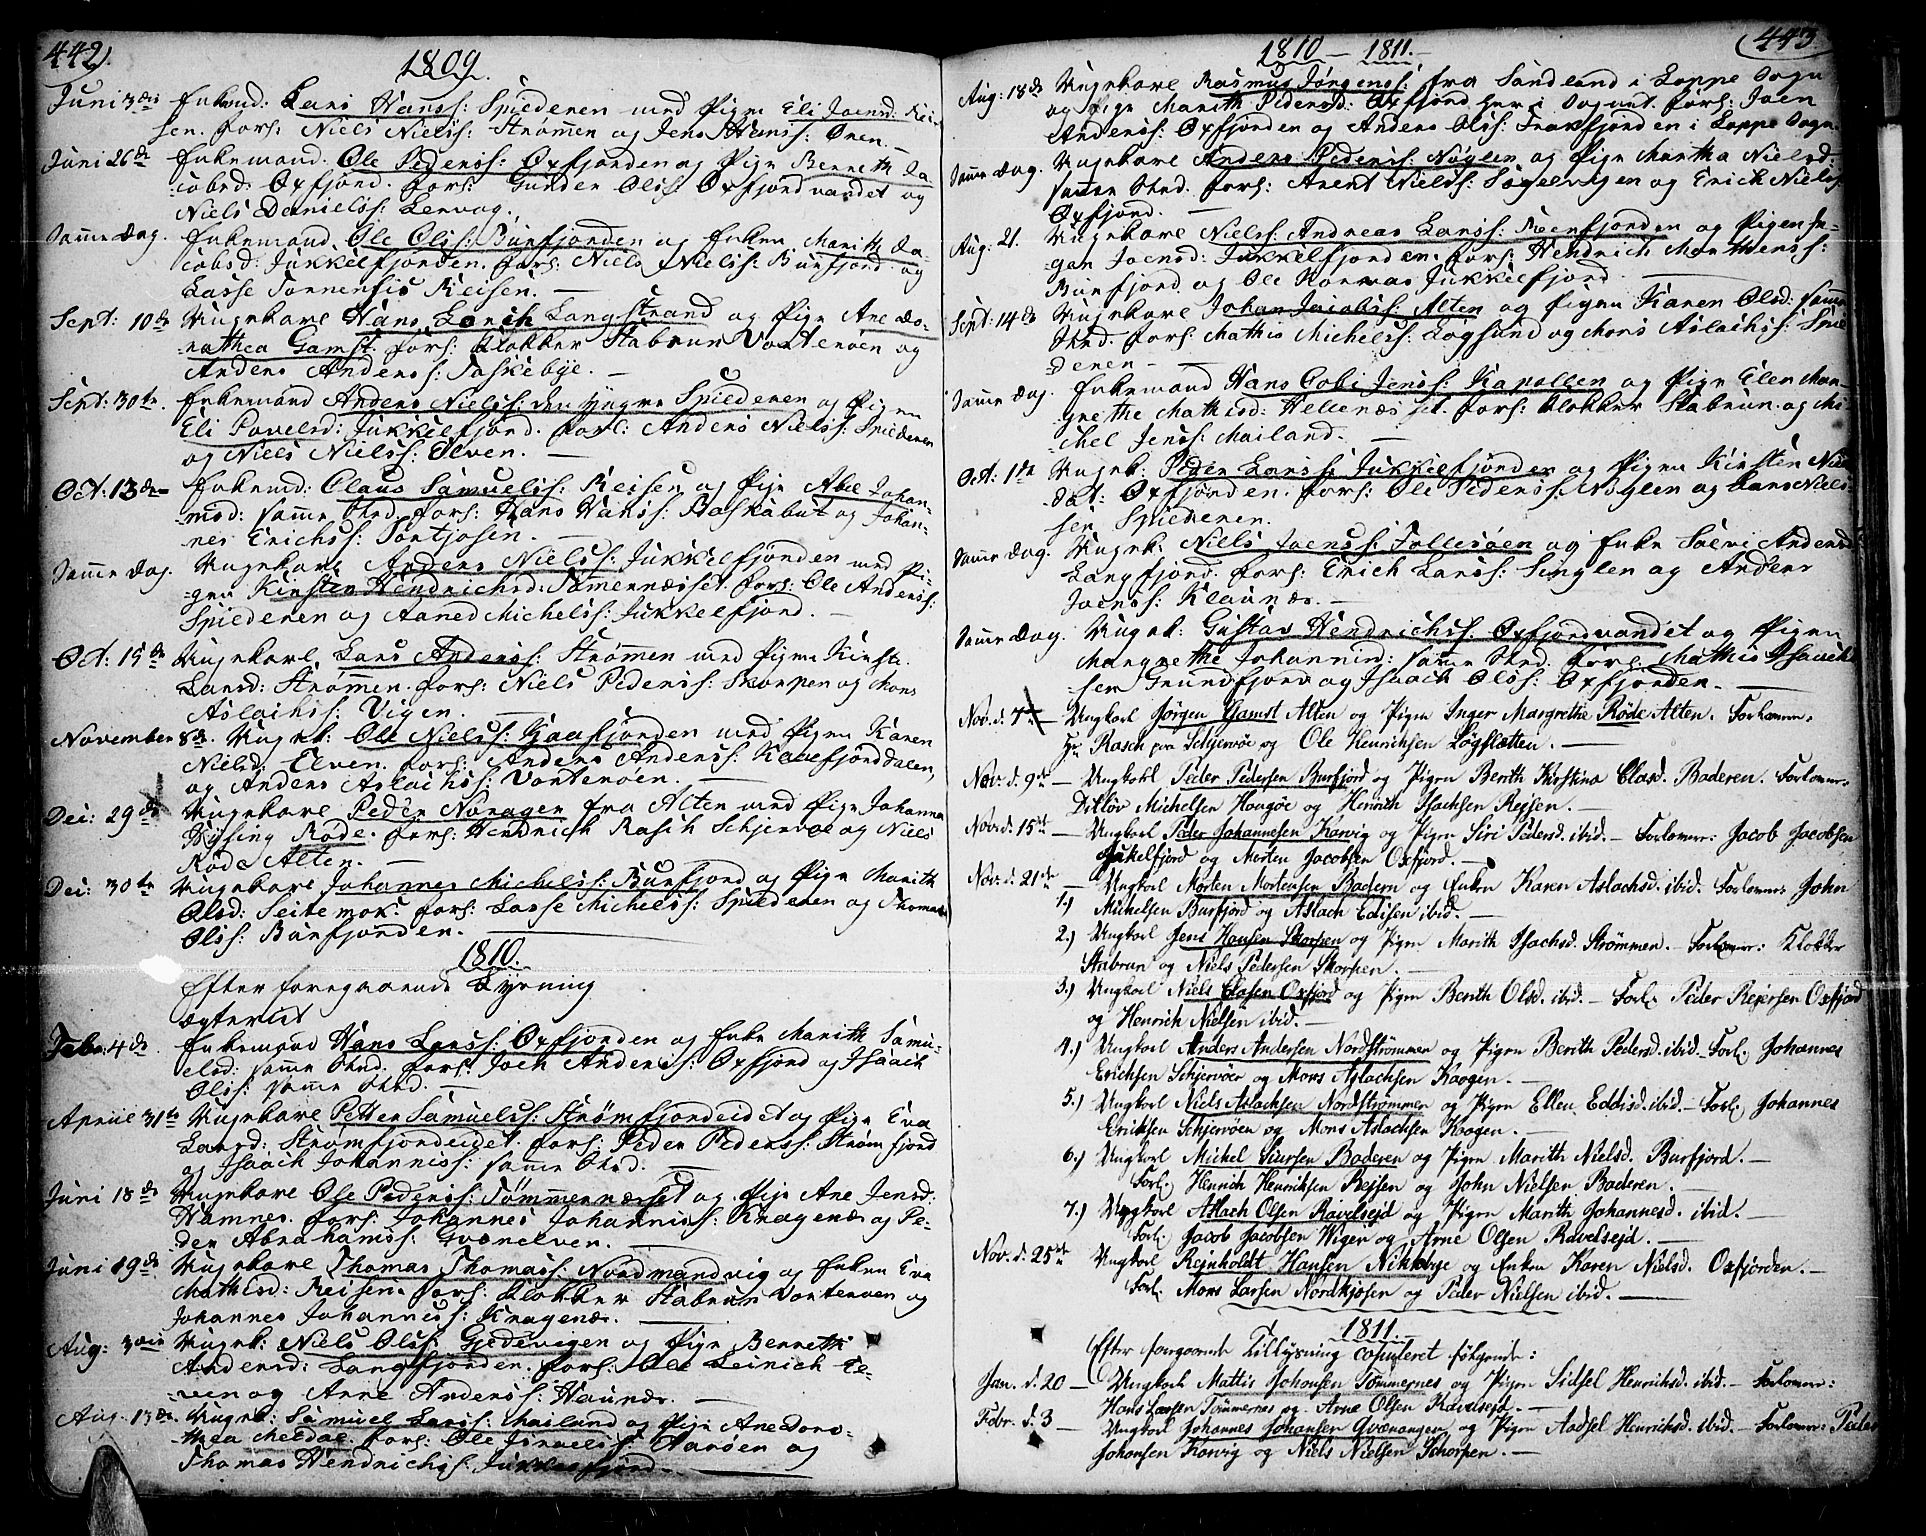 442.
1809.
Juni 3die Enkemd: Lars Hanss: Spilderen med Pigen Eli Joensd: Rei-
sen. fors: Niels Nielss: Strømmen og Jens Hanss: Ören.
Juni 26de Enkemand. Ole Pederss: Oxfjorden og Pige Berreth Ja-
cobsd: Oxfjord. fors: Gunder Olss: Oxfjordvandet og
Niels Danielss: Lervog.
Samme Dag. Enkemand. Ole Olss: Burfjorden og Enken Marith Ja-
cobsd: Jukkelfjorden. fors: Niels Nielss: Burfjord og
Lasse Tornensis Reisen.
Sept: 10de Ungekarl Hans Lorch Langstrand og Pige Ane Do-
rathea Gamst. fors: Klokker Stabrun Vortenöen og
Anders Anderss: Taskebye.
Sept: 30te. Enkemand Anders Nielss: den Yngre Spilderen og Pigen
Eli Povelsd: Jukkelfjord. fors: Anders Nielss: Spilderen
og Niels Nielss: Elven.
Oct: 13de Enkemd: Claus Samuelss: Reisen og Pige Abel Johan-
nisd: samme Sted. fors: Hans Hanss: Baskabut og Johan-
nes Erichss: Sortjosen.
Samme Dag. Ungekarl Anders Nielss: Jukkelfjorden med Pi-
gen Kirsten Hendrichsd: Tømernæsset. fors: Ole Anderss:
Spilderen og Aaned Michelss: Jukkelfjord.
Oct: 15de Ungekarl Lars Anderss: Strømen med Pigen Kirste
Larsd: Strømen. fors: Niels Pederss: Skorpen og Mons
Aslachss: Vigen.
November 8de. Ungk: Ole Nielss: Gaasfjorden med Pigen Karen
Nielsd: Elven. fors: Anders Anderss: Kaaefjorddalen,
og Anders Aslachss: Vortenöen.
Dec: 29de Ungekarl Peder Noragen fra Alten med Pige Johanna
Hysing Röde. fors: Hendrich Rasch Schjervöe og Niels
Röde Alten.
Dec: 30te Ungekarl Johannes Michelss: Burfjord og Pige Marith
Olsd: Seitemok. fors: Lasse Michelss: Spilderen og Thomas
Olss: Burfjorden.
1810.
Efter foregaaende Lysning
ægteviet
Febr: 4de Enkemand Hans Larss: Oxfjorden og Enke Marith Samu-
elsd: samme Sted. fors: Joch Anderss: Oxfjord og Isaach
Olss: samme Sted.
Apriil 31te Ungekarl Petter Samuelss: Strømfjordeidet og Pige Eva
Larsd: Strømfjordeidet. fors: Peder Pederss: Strømfjord
og Isaach Johanniss: samme Sted.
Juni 18de Ungekarl Ole Pederss: Tömmernæsset og Pige Ane Jensd:
Hamnes. fors: Johannes Johanniss: Kragenæs og Pe-
der Abrahamss: Qvænelven.
Juni 19de Ungekarl Thomas Thomass: Nordmandvig og Enken Eva
Mathisd: Reisen. fors: Klokker Stabrun Vortenöen og
Johannes Johanniss: Kragenæs.
Aug: 3die Ungk: Niels Olss: Gjedevigen og Pige Berreth
Andersd: Langfjorden. fors: Ole Leinich El-
ven og Arne Anderss: Haunæs.
Aug. 13de Ungk: Samuel Larss: Mailand og Pige Anedoro-
thea Meldal fors: Ole Joruelss: Aaröen og
Thomas Hendrichss: Jukkelfjord.
443.
1810 — 1811.
Aug: 18de Ungekarl Rasmus Jörgenss: fra Sandland i Loppe Sogn
og Pige Marith Pedersd: Oxfjord her i Sognet. fors: Joen
Anderss: Oxfjorden og Anders Olss: Frakfjorden i Loppe Sogn.
Samme Dag. Ungekarl Anders Pederss: Nöglen og Pige Martha Nielsd:
samme Sted. fors: Arent Nielss: Segelvigen og Erich Nielss:
Oxfjord.
Aug: 21. Ungekarl Nielss: Andreas Larss: Reenfjorden og Pigen In-
ger Joensd: Jukkelfjorden. fors: Hendrich Morthenss:
Burfjord og Ole Hormas Jukkelfjord
Sept: 14de Ungekarl Johan Jacobss: Alten og Pigen Karen Olsd: samme
Sted. fors: Mathis Michelss: Løgsund og Mons Aslachss: Spil-
deren
Samme Dag. Enkemand Hans Gobi Jenss: Kapellen og Pige Elen Mar-
grethe Mathisd: Hellenæsset. fors: Klokker Stabrun og Mi-
chel Jenss: Mailand.
Oct: 1te Ungk: Peder Larss: Jukkelfjorden og Pigen Kirsten Niels
dat: Oxfjorden. fors: Ole Pederss: Nöglen og Lars Niels-
sen Spilderen.
Samme Dag. Ungk: Niels Joenss: Follesöen og Enke Soevi Andersd:
Langfjord. fors: Erich Larss: Singlen og Anders
Joenss: Klaunæs.
Samme Dag. Ungk: Gustav Hendrichss: Oxfjordvandet og Pigen
Margrethe Johannisd: samme Sted. fors: Mathis Isaach
sen Grundfjord og Isaach Olss: Oxfjorden.
Nov. d. 7de Ungkarl Jørgen Gamst Alten og Pigen Inger Margrethe Røde Alten. Forlovere:
Hr Rasch paa Schjervöe og Ole Henriksen Løgslætten.
Nov. d. 9de — Ungkarl Peder Pedersen Burfjord og Pigen Berith Kirstina Clasd. Baderen. Forlover:
Ditløv Michelsen Haugøe og Henrich Isachsen Rejsen.
Nov. d. 15de — Ungkarl Peder Johannesen Karvig og Pigen Siri Pedersd. ibid. — Forlover: Jacob Jacobsen
Jukelfjord og Morten Jacobsen Oxfjord.
Nov. d. 21de — Ungkarl Morten Mortensen Badern og Enken Karen Aslachsd. ibid. Forlover: John
1.) Michelsen Burfjord og Aslach Edisen ibid.
2.) Ungkarl Jens Hansen Skorpen og Pigen Marith Isachsd. Strømmen. Forlover: Klokker
Stabrun og Niels Pedersen Skorpen.
3.) Ungkarl Niels Clasen Oxfjord og Pigen Berith Olsd. ibid. — Forl: Peder Rejersen Oxfjord
og Henrich Nielsen ibid.
4.) Ungkarl Anders Andersen Nordstrømmen og Pigen Berith Pedersd. ibid. — Forl: Johannes
Erichsen Schjervöer og Mons Aslachsen Kaagen.
5.) Ungkarl Niels Aslachsen Nordstrømmen og Pigen Ellen Eddisd. ibid. — Forl: Johannes
Eriksen Schjervöen og Mons Aslachsen Kaagen.
6.) Ungkarl Michel Siursen Baderen og Pigen Marith Nielsd. Burfjord.
Forl: Henrich Henriksen Rejsen og John Nielsen Baderen.
7.) Ungkarl Aslach Olsen Ravelsejd og Pigen Marith Johannesd. ibid.
Forl: Jacob Jacobsen Wigen og Arne Olsen Ravelsejd.
Nov. d. 25de Ungkarl Rejnholdt Hansen Nikkebye og Enken Karen Nielsd. Oxfjorden.
Forl: Mons Larsen Nordkjosen og Peder Nielsen ibid.
1811.
Efter foregaaende Tillysning copuleret følgende:
Jan. d. 20 — Ungkarl Mattis Johansen Tømmernes og Pigen Sidsel Henrichsd. ibid. — Forlover:
Hans Larsen Tømmernes og Arne Olsen Ravelsejd.
Febr. d. 3 — Ungkarl Johannes Johansen Qvænangen og Pigen Aadsel Henrichsd. ibid. — Forlover: Peder
Johansen Karvig og Niels Nielsen Schorpen.